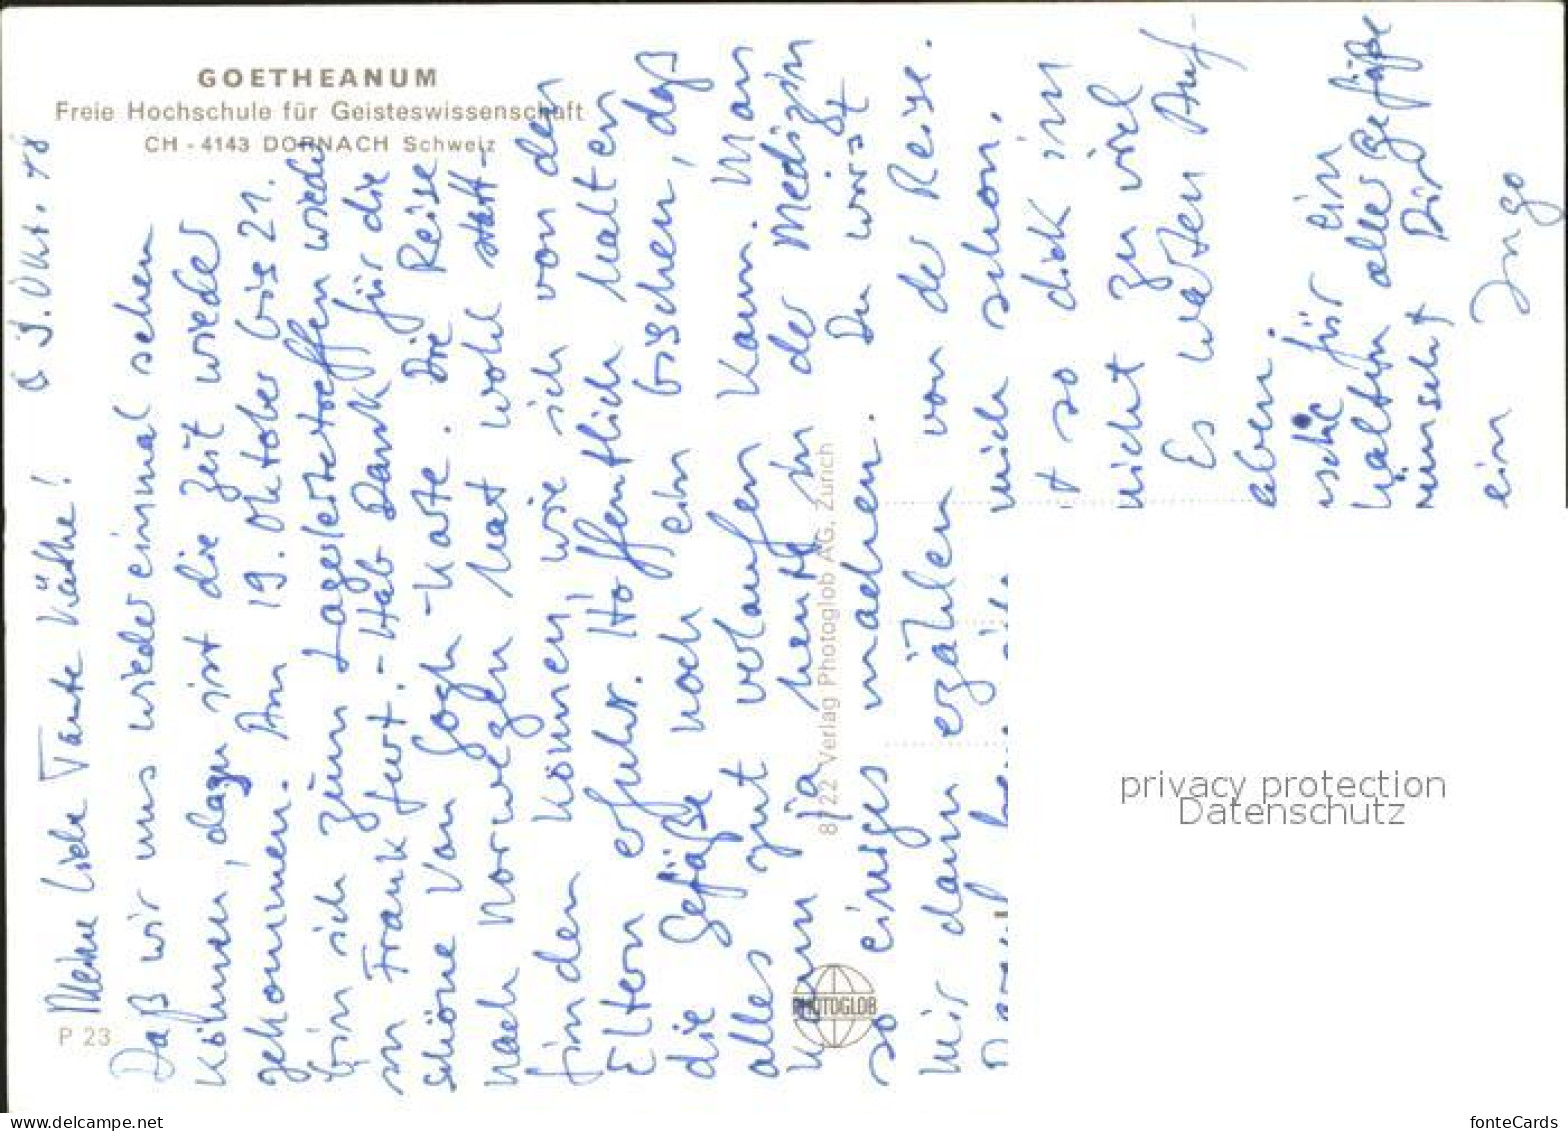 GOETHEANUM
Freie Hochschule für Geisteswissenschaft
CH - 4143 DORNACH Schweiz
P 23
8722 Verlag Photoglob AG, Zürich
PHOTOGLOB
3. Okt. 78
Meine liebe Tante Käthe!
Daß wir uns wieder einmal sehen
können, dazu ist die Zeit wieder
gekommen. Am 19. Oktober bis 21.
bin ich zum Lagerleitertreffen wieder
in Frankfurt. - Hab Dank für die
schöne Van Gogh-Karte. Die Reise
nach Norwegen hat wohl statt-
finden können, wie ich von den
Eltern erfuhr. Hoffentlich halten
die Gefäße noch ein bischen, daß
alles gut verlaufen kann. Man
kann ja heute in der Medizin
so einiges machen. Du wirst
mir dann erzählen von der Reise.
mich schon.
t so dick im
nicht zu viel
Es warten Auf-
aben.
ische für ein
halten aller Gefäße
wünscht Dir
ein Ingo
privacy protection
Datenschutz
www.delcampe.net
fonteCards